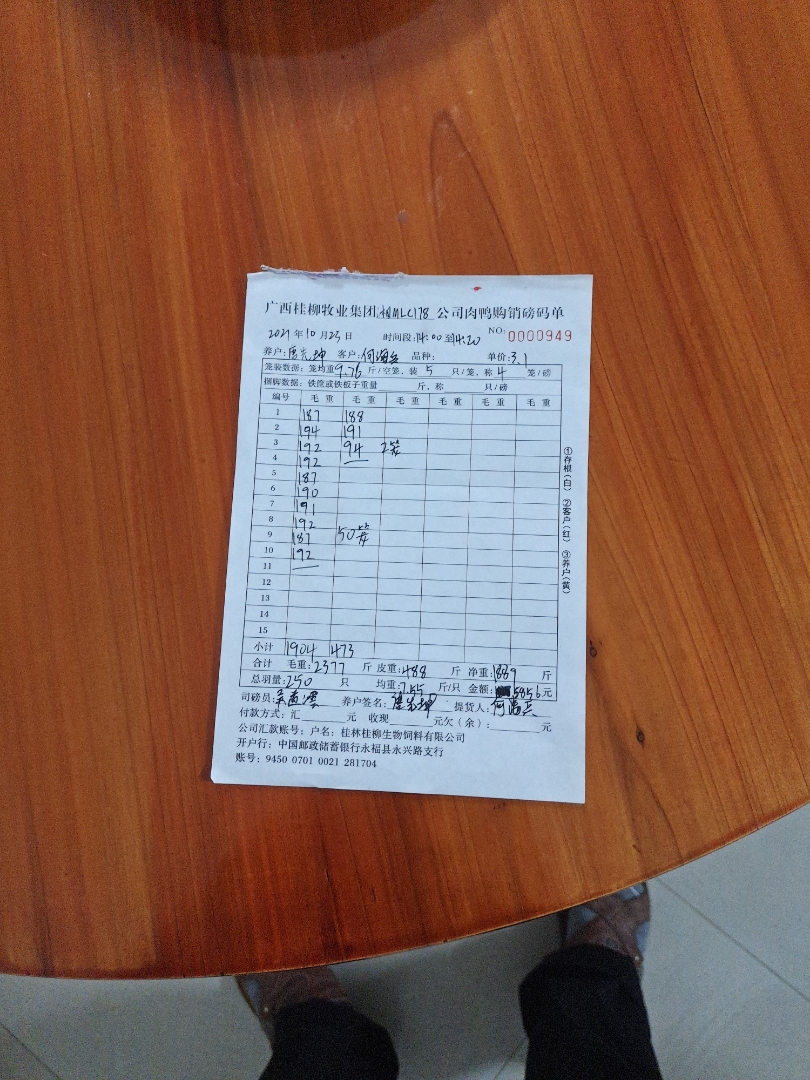 广西桂柳牧业集团 MLC178 公司肉鸭购销磅码单
NO: 0000949
2021 年 10 月 23 日 时间段: 14:00 到 14:20
养户: 客户: 何海兵 品种: 单价: 3.1
笼装数据: 笼均重 9.76 斤/空笼, 装 5 只/笼, 称 4 笼/磅
捆脚数据: 铁筐或铁板子重量 斤, 称 只/磅
编号 毛 重 毛 重 毛 重 毛 重 毛 重 毛 重
1 187 188
2 194 191
3 192 94 2笼
4 192
5 187
6 190
7 191
8 192
9 187 50笼
10 192
11
12
13
14
15
小计 1904 473
合计 毛重: 2377 斤 皮重: 488 斤 净重: 1889 斤
总羽量: 250 只 均重: 7.55 斤/只 金额: 5856 元
司磅员: 养户签名: 提货人: 何海兵
付款方式: 汇 元 收现 元欠(余): 元
公司汇款账号: 户名: 桂林桂柳生物饲料有限公司
开户行: 中国邮政储蓄银行永福县永兴路支行
账号: 9450 0701 0021 281704
①存根(白) ②客户(红) ③养户(黄)